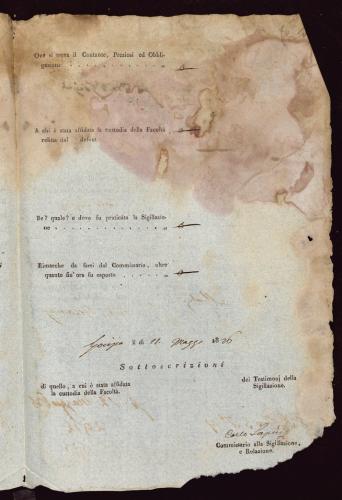 Ove si trova il Contante, Preziosi ed Obbli-
gazioni
A chi è stata affidata la custodia della Facoltà
relitta dal defont
Se? quale? e dove fu praticata la Sigillazio-
ne
Rimarche da farsi dal Commissario, oltre
quanto sin' ora fu esposto
li 11. Maggio 1826
Sottoscrizioni
di quello, a cui è stata affidata
la custodia della Facoltà.
dei Testimonj della
Sigillazione.
Carlo
Commissario alla Sigillazione,
e Relazione.